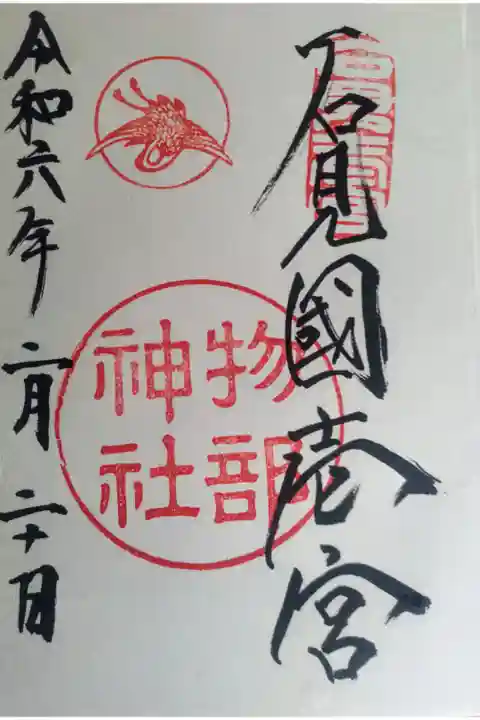 石見國壱宮
物部
神社
令和六年二月二十日